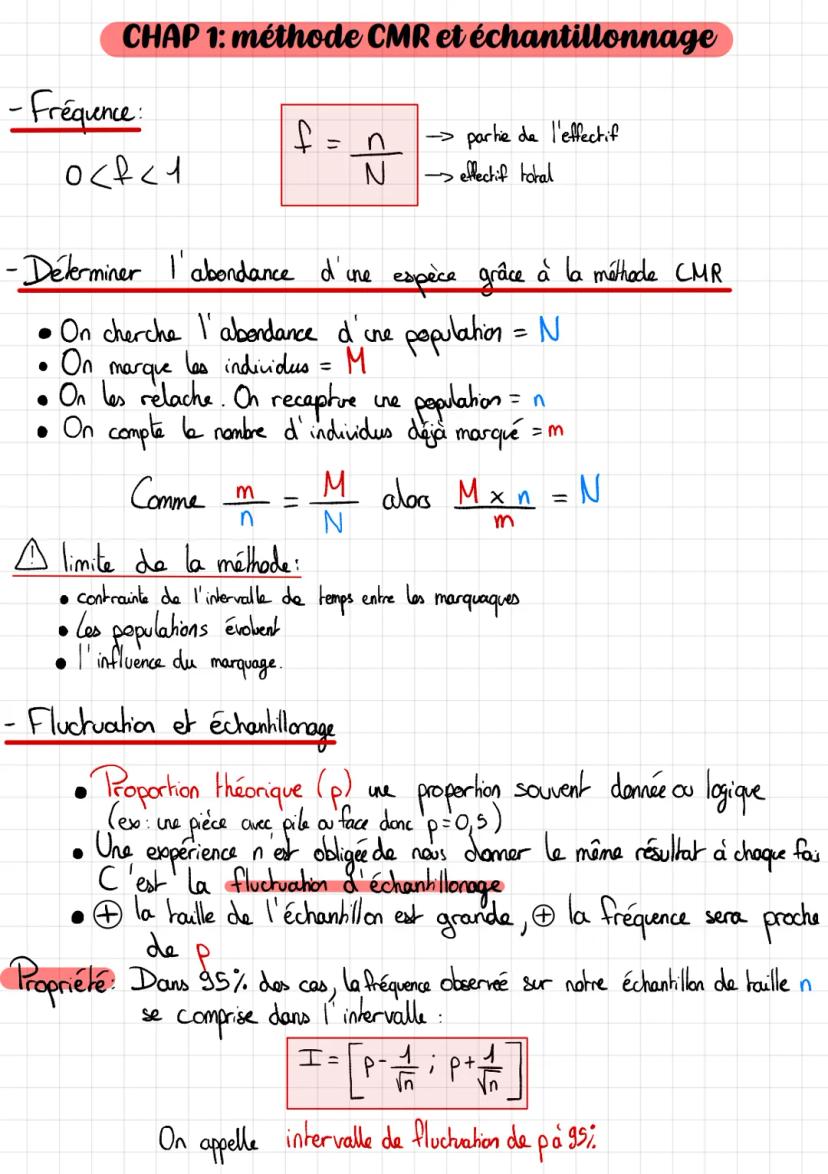 CHAP 1: méthode CMR et échantillonnage
- Fréquence:
0<f<1
f = n/N
→ partie de l'effectif
→ effectif total
- Déterminer l'abondance d'une espèce grâce à la méthode CMR
• On cherche l'abondance d'une population = N
• On marque les individus = M
• On les relache. On recapture une population = n
• On compte le nombre d'individus déjà marqué = m
Comme m/n = M/N alors M x n/m = N
⚠ limite de la méthode:
• contrainte de l'intervalle de temps entre les marquages
• Les populations évoluent
• l'influence du marquage.
- Fluctuation et échantillonage
• Proportion théorique (p) une proportion souvent donnée ou logique
(ex: une pièce avec pile ou face donc p=0,5)
• Une expérience n'est obligée de nous donner le même résultat à chaque fois
C'est la fluctuation d'échantillonage
• ⊕ la taille de l'échantillon est grande, ⊕ la fréquence sera proche
de p
Propriété: Dans 95% des cas, la fréquence observée sur notre échantillon de taille n
se comprise dans l'intervalle :
I = [p - 1/√n ; p + 1/√n]
On appelle intervalle de fluctuation de p à 95%